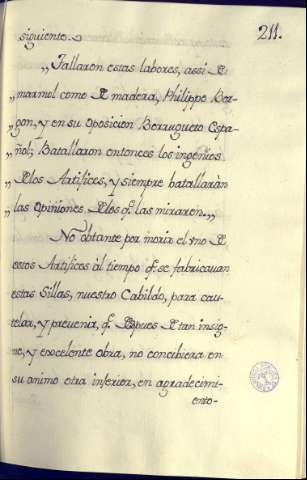 211.
siguiente.
„Tallaron estas labores, assi de
„marmol como de madera, Philippo Bor-
„gon, y en su oposicion Berrugueto Espa-
„ñol; Batallaron entonces los ingenios
„de los Artifices, y siempre batallaràn
„las opiniones de los q̃ las miraren.„
No obtante por morir el vno de
estos Artifices àl tiempo q̃ se fabricauan
estas Sillas, nuestro Cabildo, para cau-
telar, y prevenir, q̃ despues de tan insig-
ne, y excelente obra, no concibiera en
su animo otra inferior, en agradecimi-
ento-